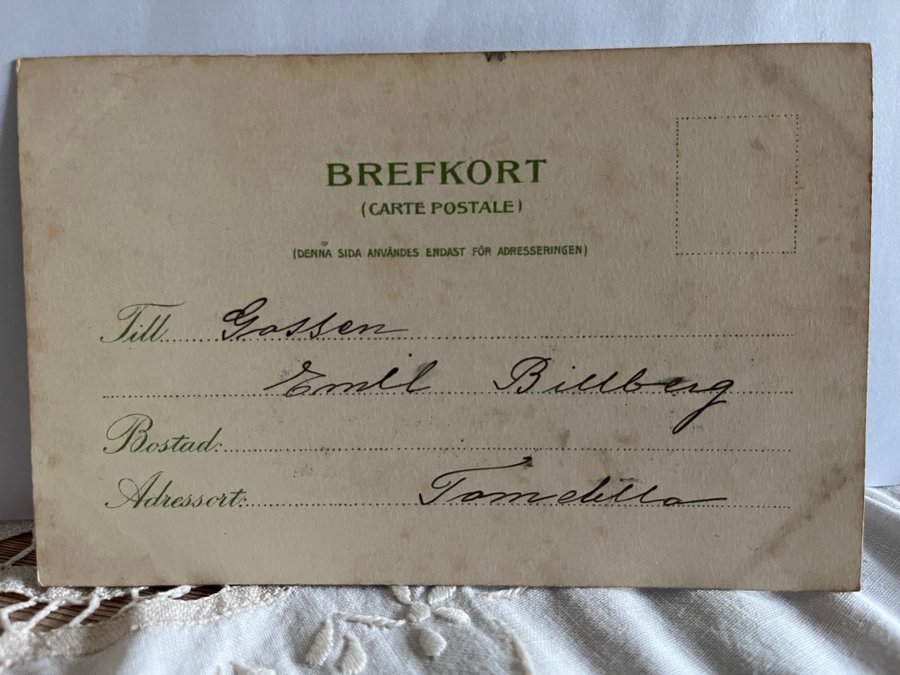 BREFKORT
(CARTE POSTALE)
(DENNA SIDA ANVÄNDES ENDAST FÖR ADRESSERINGEN)
Till Gossen
Emil Billberg
Bostad:
Adressort: Tomelilla